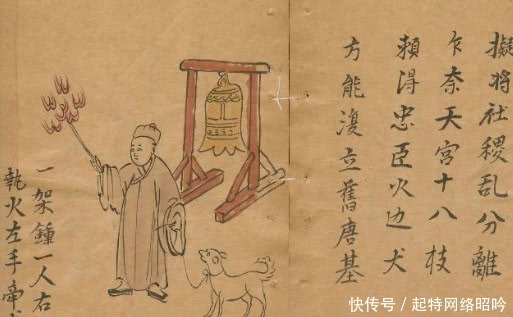 擬将社稷乱分離
乍奈天宫十八枝
頼得忠臣火边犬
方能復立舊唐基
一架鍾一人右
執火左手
快传号/起特网络昭吟